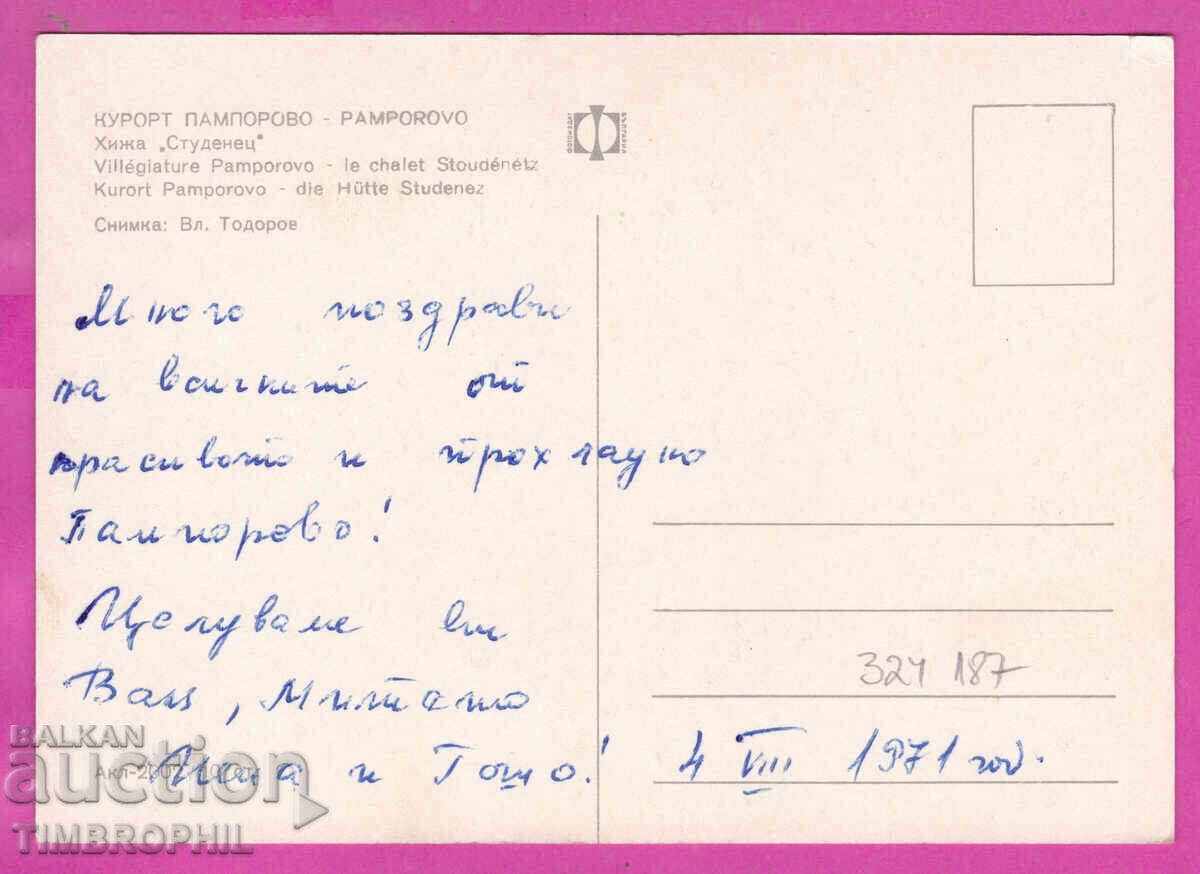 КУРОРТ ПАМПОРОВО - PAMPOROVO
Хижа „Студенец"
Villégiature Pamporovo - le chalet Stoudénétz
Kurort Pamporovo - die Hütte Studenez
Снимка: Вл. Тодоров
ФОТОИЗДАТ
БЪЛГАРИЯ
Много поздрави
на всичките от
красивото и прохладно
Пампорово!
Целуваме ви
Ваш, Митко
и Гошо!
4 VIII 1971 год.
324 187
Акл-2002
BALKAN
auction
TIMBROPHIL